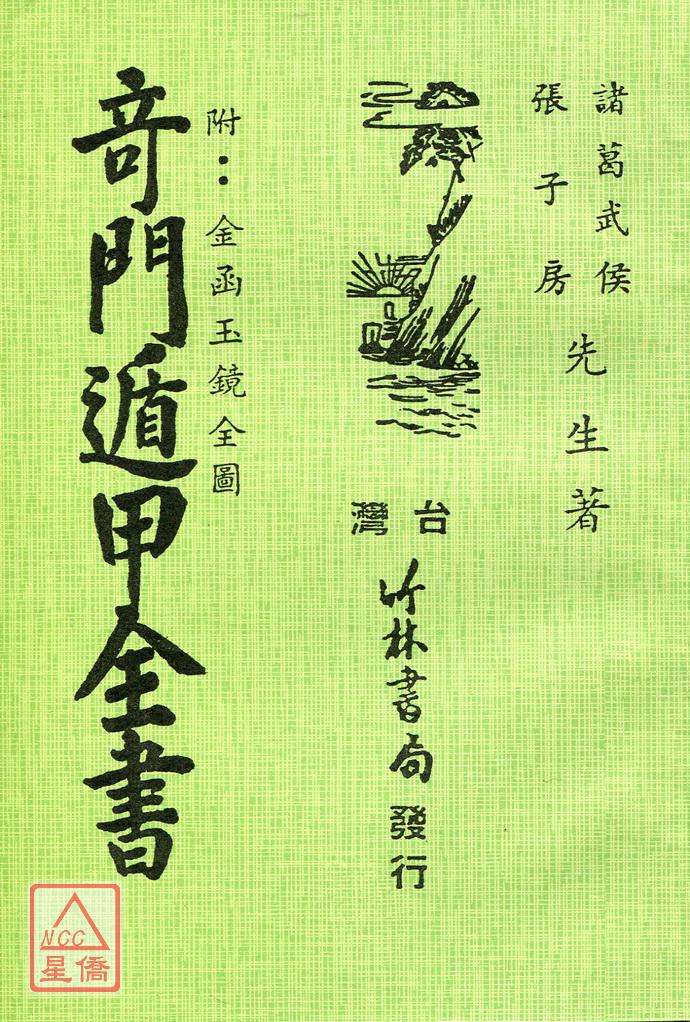 諸葛武侯
張子房
先生著
台灣
竹林書局發行
附：金函玉鏡全圖
奇門遁甲全書
NCC
星僑